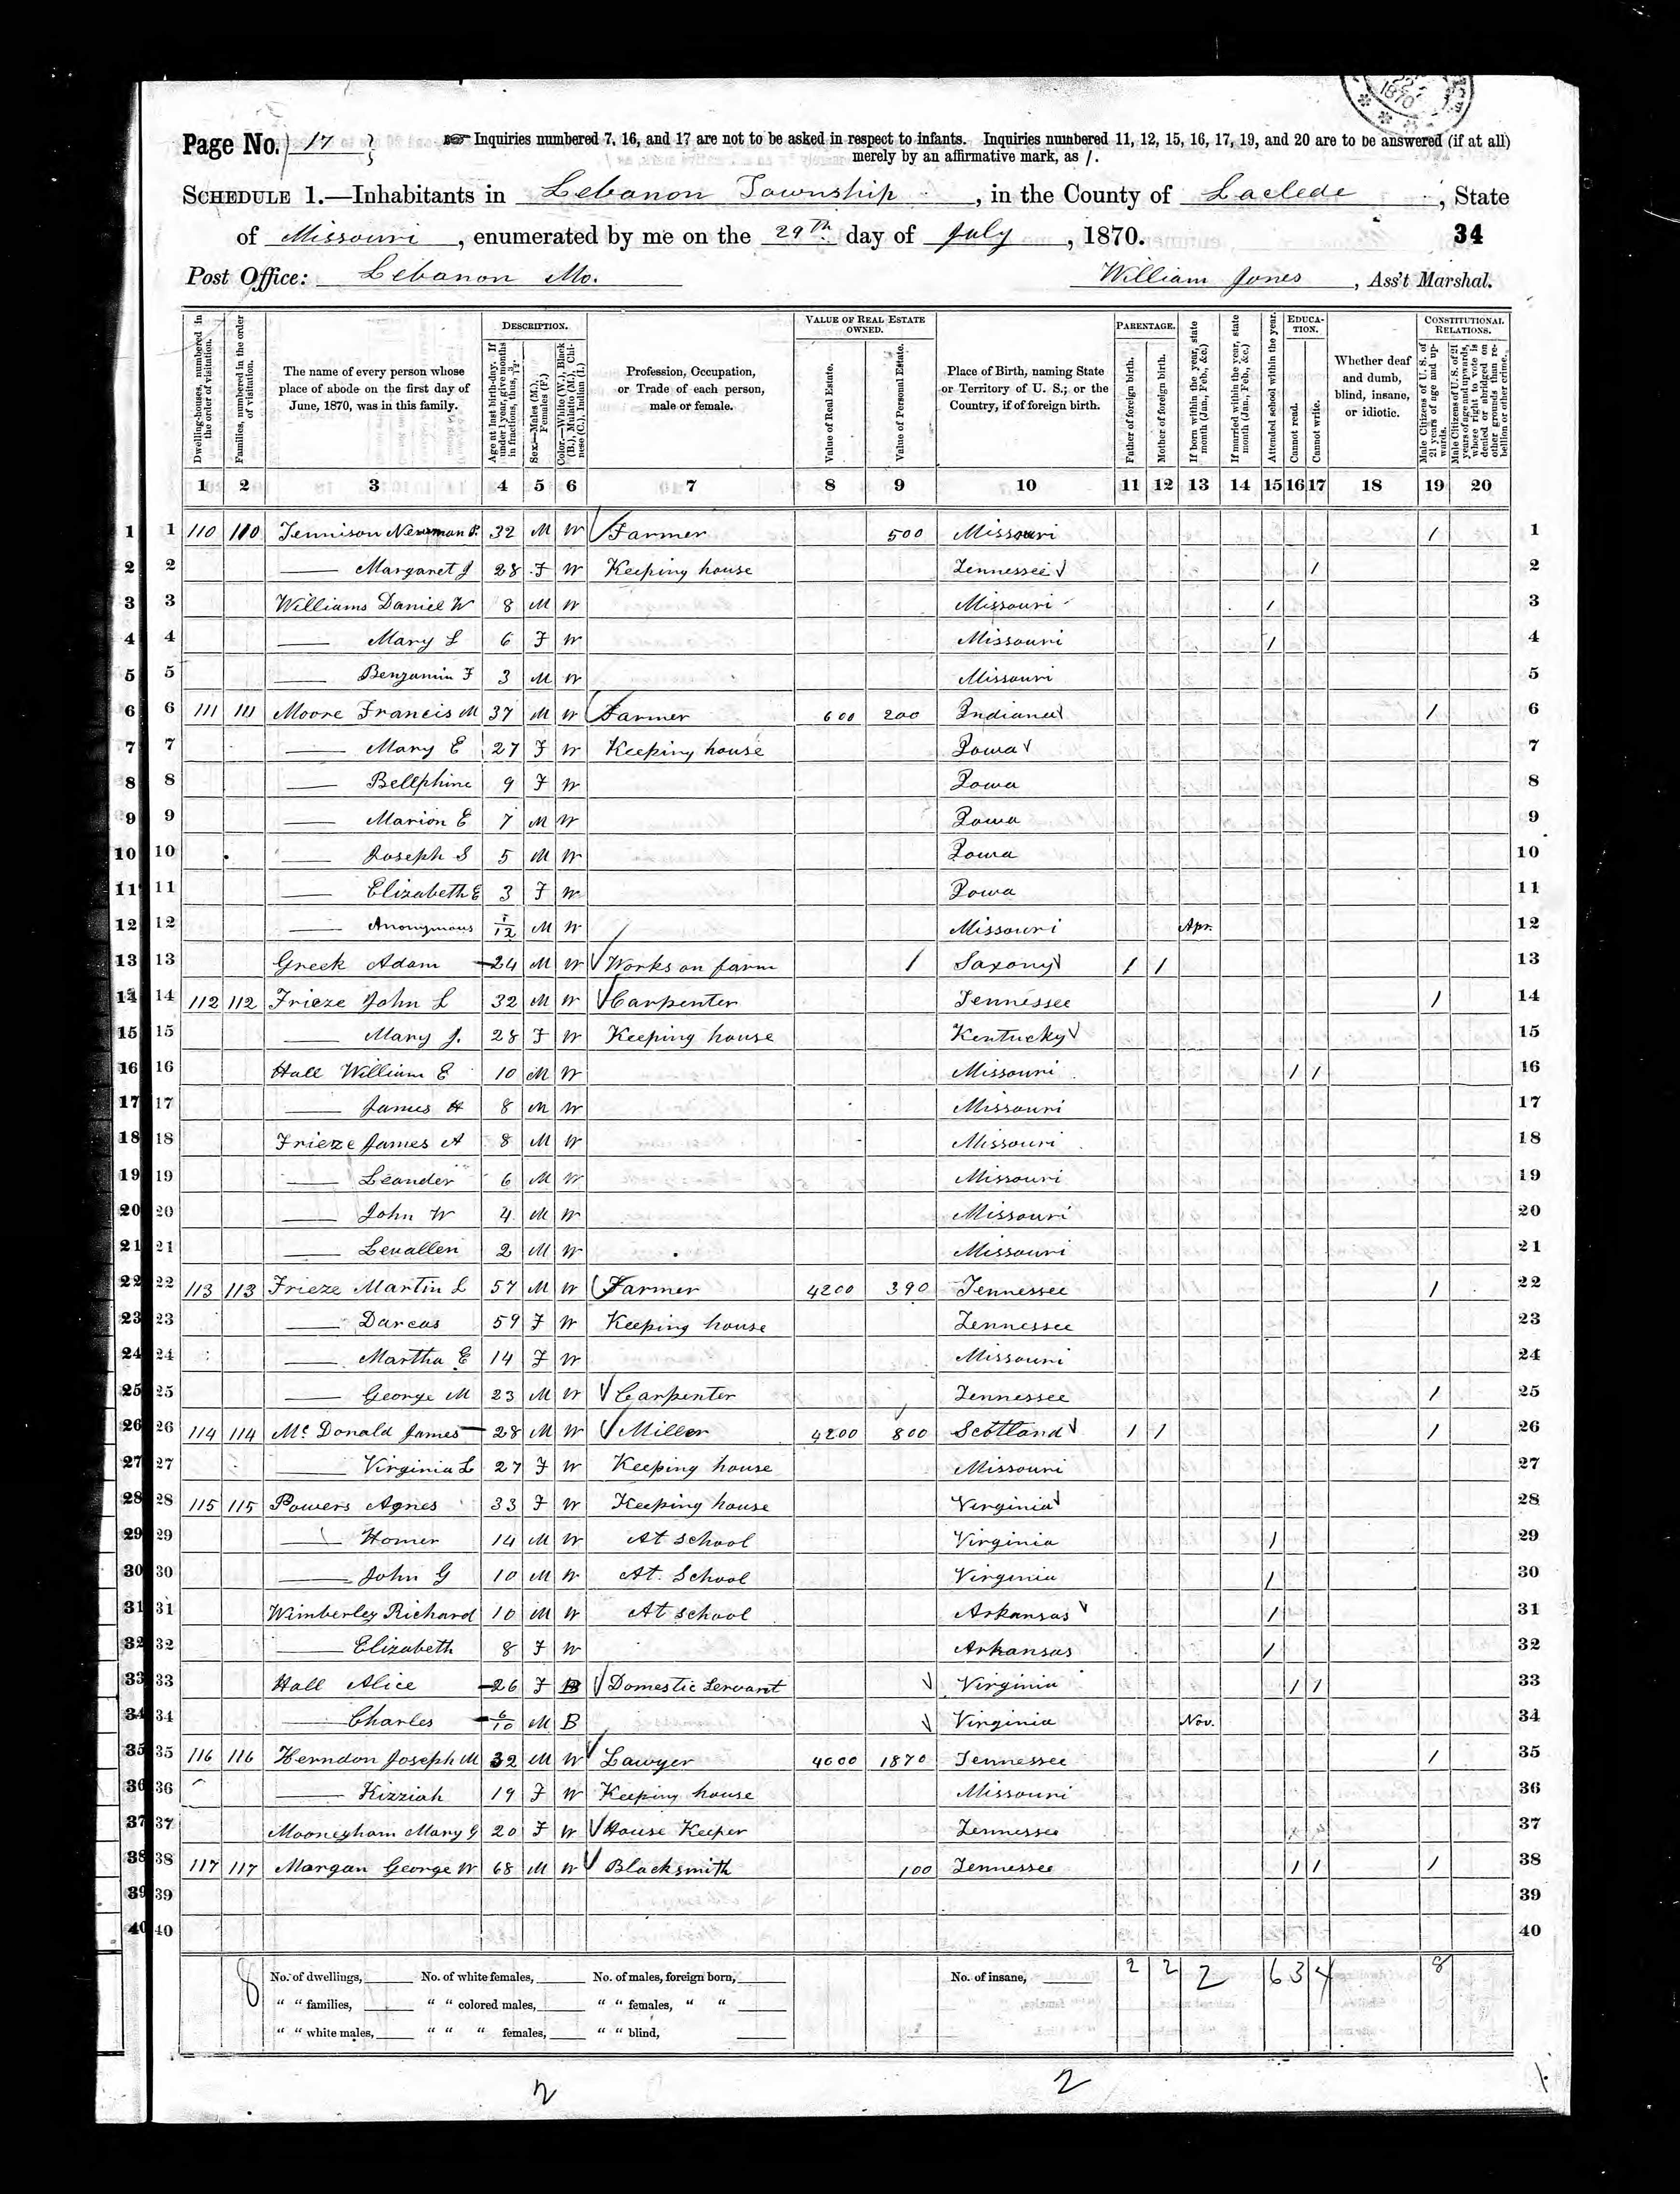 1870
Page No. 17
Inquiries numbered 7, 16, and 17 are not to be asked in respect to infants. Inquiries numbered 11, 12, 15, 16, 17, 19, and 20 are to be answered (if at all)
merely by an affirmative mark, as /.
SCHEDULE 1.—Inhabitants in Lebanon Township, in the County of Laclede, State
of Missouri, enumerated by me on the 29th day of July, 1870. 34
Post Office: Lebanon Mo. William Jones, Ass't Marshal.
Dwelling-houses, numbered in the order of visitation.
Families, numbered in the order of visitation.
The name of every person whose place of abode on the first day of June, 1870, was in this family.
DESCRIPTION.
Age at last birth-day. If under 1 year, give months in fractions, thus, 3/12.
Sex.—Males (M.), Females (F.)
Color.—White (W.), Black (B.), Mulatto (M.), Chinese (C.), Indian (I.)
Profession, Occupation, or Trade of each person, male or female.
VALUE OF REAL ESTATE OWNED.
Value of Real Estate.
Value of Personal Estate.
Place of Birth, naming State or Territory of U. S.; or the Country, if of foreign birth.
PARENTAGE.
Father of foreign birth.
Mother of foreign birth.
If born within the year, state month (Jan., Feb., &c.)
If married within the year, state month (Jan., Feb., &c.)
Attended school within the year.
EDUCATION.
Cannot read.
Cannot write.
Whether deaf and dumb, blind, insane, or idiotic.
CONSTITUTIONAL RELATIONS.
Male Citizens of U. S. of 21 years of age and upwards.
Male Citizens of U. S. of 21 years of age and upwards, whose right to vote is denied or abridged on other grounds than rebellion or other crime.
1 2 3 4 5 6 7 8 9 10 11 12 13 14 15 16 17 18 19 20
1 1 110 110 Tennison Newman P. 32 M W Farmer 500 Missouri / 1
2 2 — Margaret J 28 F W Keeping house Tennessee / 2
3 3 Williams Daniel W 8 M W Missouri / 3
4 4 — Mary L 6 F W Missouri / 4
5 5 — Benjamin F 3 M W Missouri 5
6 6 111 111 Moore Francis M 37 M W Farmer 600 200 Indiana / 6
7 7 — Mary E 27 F W Keeping house Iowa 7
8 8 — Bellphine 9 F W Iowa 8
9 9 — Marion E 7 M W Iowa 9
10 10 — Joseph S 5 M W Iowa 10
11 11 — Elizabeth E 3 F W Iowa 11
12 12 — Anonymous 1/12 M W Missouri Apr. 12
13 13 Greek Adam 24 M W Works on farm / Saxony / / 13
14 14 112 112 Frieze John L 32 M W Carpenter Tennessee / 14
15 15 — Mary J. 28 F W Keeping house Kentucky 15
16 16 Hall William E 10 M W Missouri / / 16
17 17 — James H 8 M W Missouri 17
18 18 Frieze James A 8 M W Missouri 18
19 19 — Leander 6 M W Missouri 19
20 20 — John W 4 M W Missouri 20
21 21 — Levallen 2 M W Missouri 21
22 22 113 113 Frieze Martin L 57 M W Farmer 4200 390 Tennessee / 22
23 23 — Darcas 59 F W Keeping house Tennessee 23
24 24 — Martha E 14 F W Missouri 24
25 25 — George M 23 M W Carpenter Tennessee / 25
26 26 114 114 Mc Donald James 28 M W Miller 4200 800 Scotland / / / 26
27 27 — Virginia L 27 F W Keeping house Missouri 27
28 28 115 115 Powers Agnes 33 F W Keeping house Virginia 28
29 29 — Homer 14 M W At school Virginia / 29
30 30 — John G 10 M W At School Virginia / 30
31 31 Wimberley Richard 10 M W At school Arkansas / 31
32 32 — Elizabeth 8 F W Arkansas / 32
33 33 Hall Alice 26 F B Domestic Servant Virginia / / 33
34 34 — Charles 6/10 M B Virginia Nov. 34
35 35 116 116 Herndon Joseph M 32 M W Lawyer 4000 1870 Tennessee / 35
36 36 — Kizziah 19 F W Keeping house Missouri 36
37 37 Mooneyham Mary G 20 F W House Keeper Tennessee 37
38 38 117 117 Margan George W 68 M W Blacksmith 100 Tennessee / / / 38
39 39 39
40 40 40
8 No. of dwellings, No. of white females, No. of males, foreign born, No. of insane, 2 2 2 6 3 4 8
" " families, " " colored males, " " females, " "
" " white males, " " " females, " " blind,
2 2